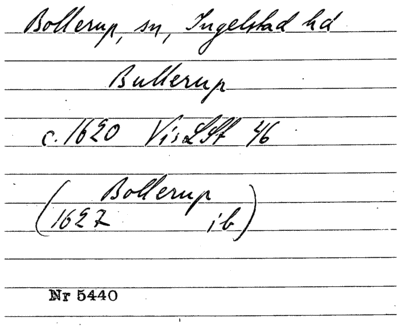 Bollerup, sn, Ingelstad hd
Bullerup
c. 1620 VisLSt 46
(Bollerup
1627 ib)
Nr 5440